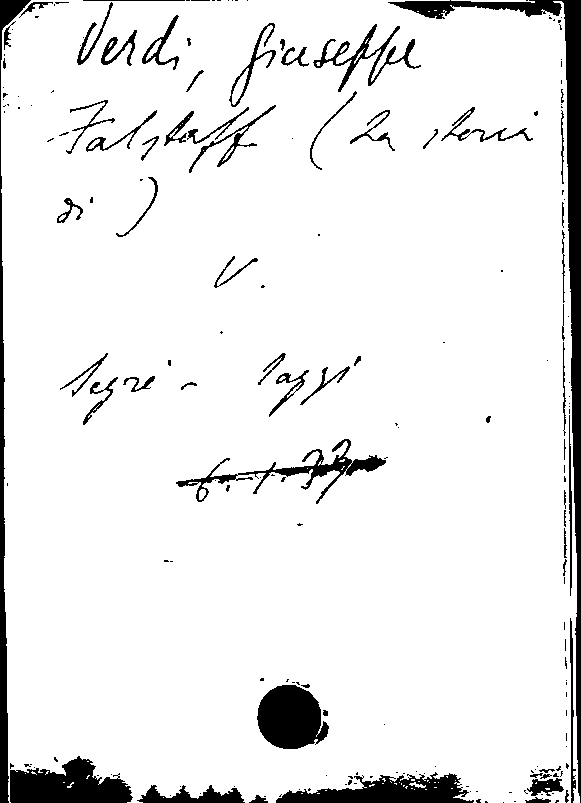 Verdi, Giuseppe
Falstaff (La storia
di)
V.
Segrè - Saggi
6.1.33